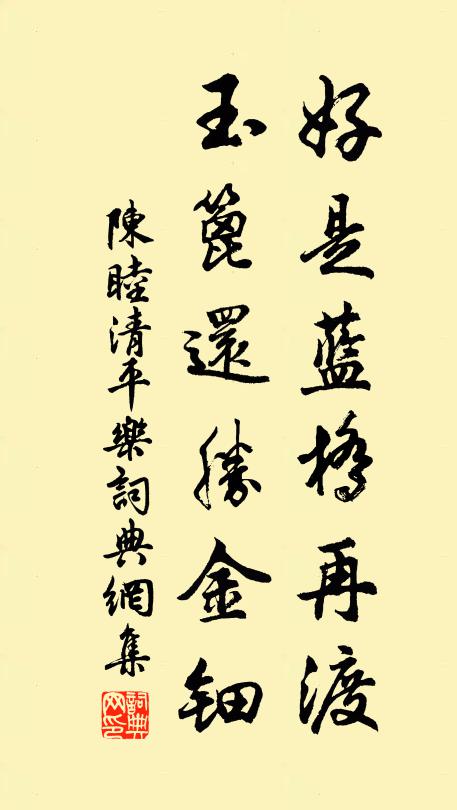 好是藍橋再渡
玉篦還勝金鈿
陳睦清平樂詞典網集
詞典网印